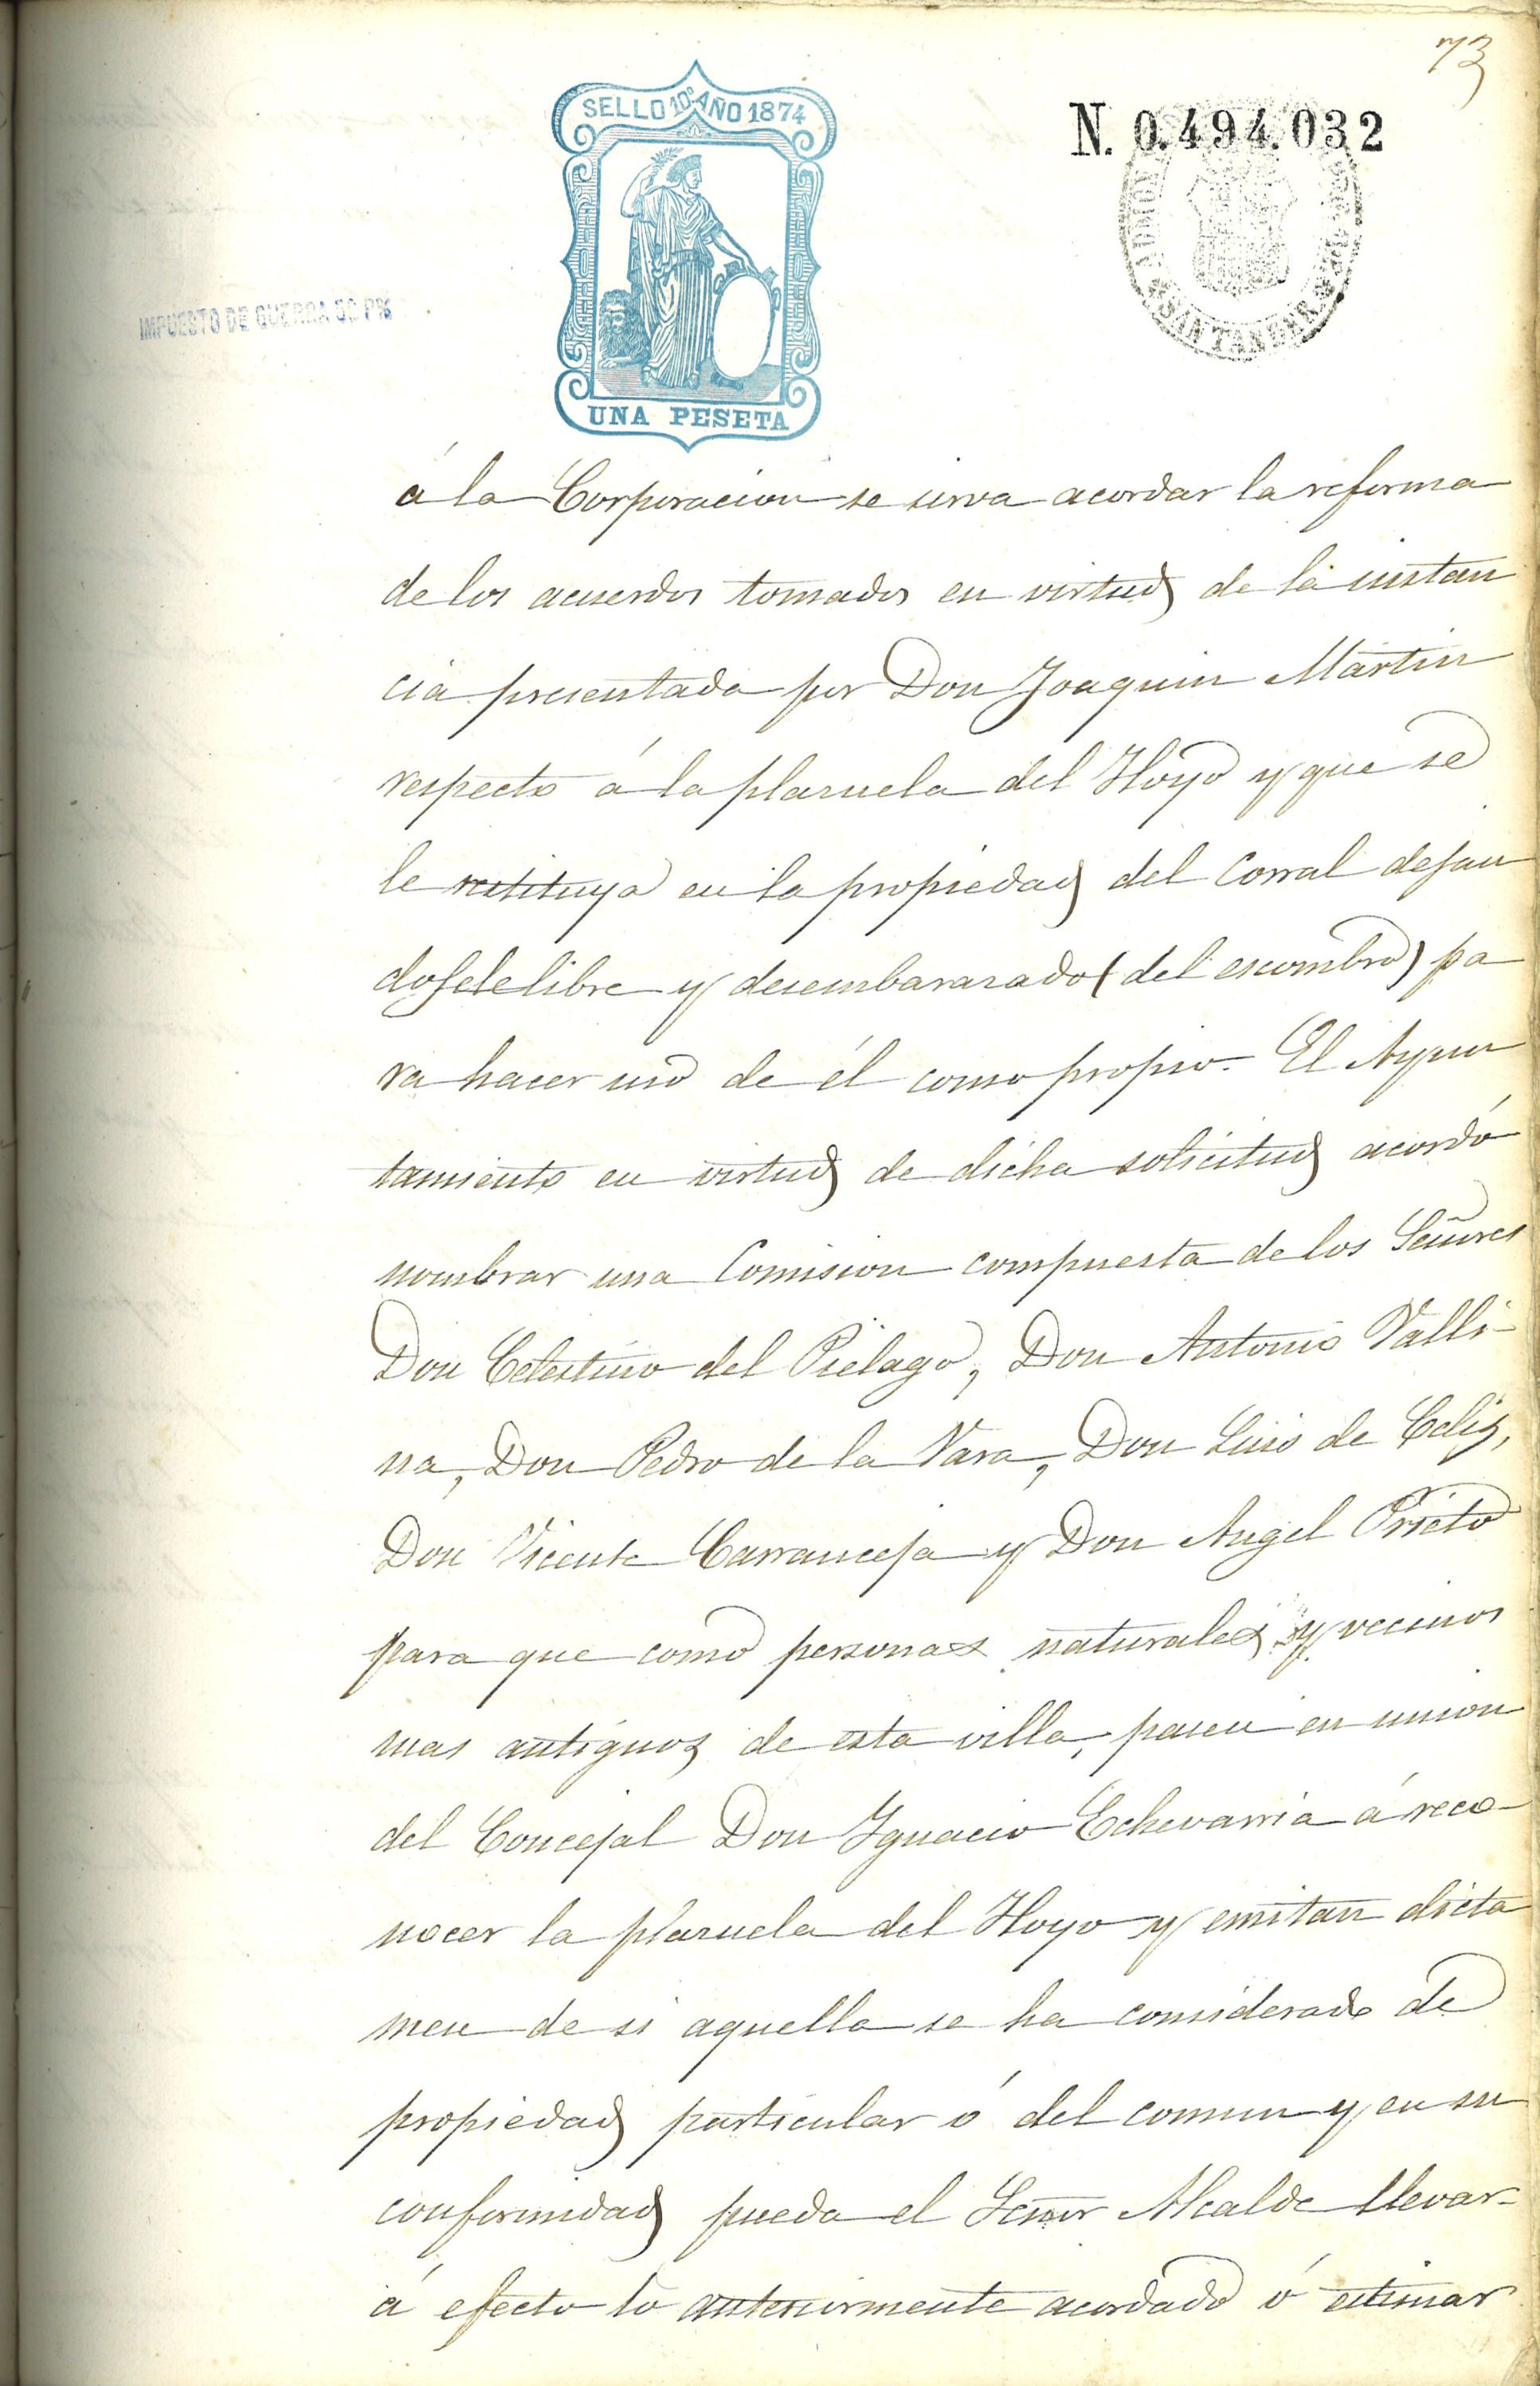 73
SELLO 10º AÑO 1874
N. 0.494.032
SANTANDER
IMPUESTO DE GUERRA 50 P%
UNA PESETA
á la Corporacion se sirva acordar la reforma
de los acuerdos tomados en virtud de la instan
cia presentada por Don Joaquin Martin
respecto á la plazuela del Hoyo y que se
le restituya en la propiedad del Corral dejan
dosele libre y desembarazado (del escombro) pa
ra hacer uso de él como propio. El Ayun
tamiento en virtud de dicha solicitud acordó
nombrar una Comision compuesta de los Señores
Don Celestino del Piélago, Don Antonio Valli-
na, Don Pedro de la Vara, Don Luis de Celiz,
Don Vicente Carranceja y Don Angel Prieto
para que como personas naturales y vecinos
mas antiguos de esta villa, pasen en union
del Concejal Don Ignacio Echevarria á reco-
nocer la plazuela del Hoyo y emitan dicta
men de si aquella se ha considerado de
propiedad particular ó del comun y en su
conformidad pueda el Señor Alcalde llevar
á efecto lo anteriormente acordado ó estimar